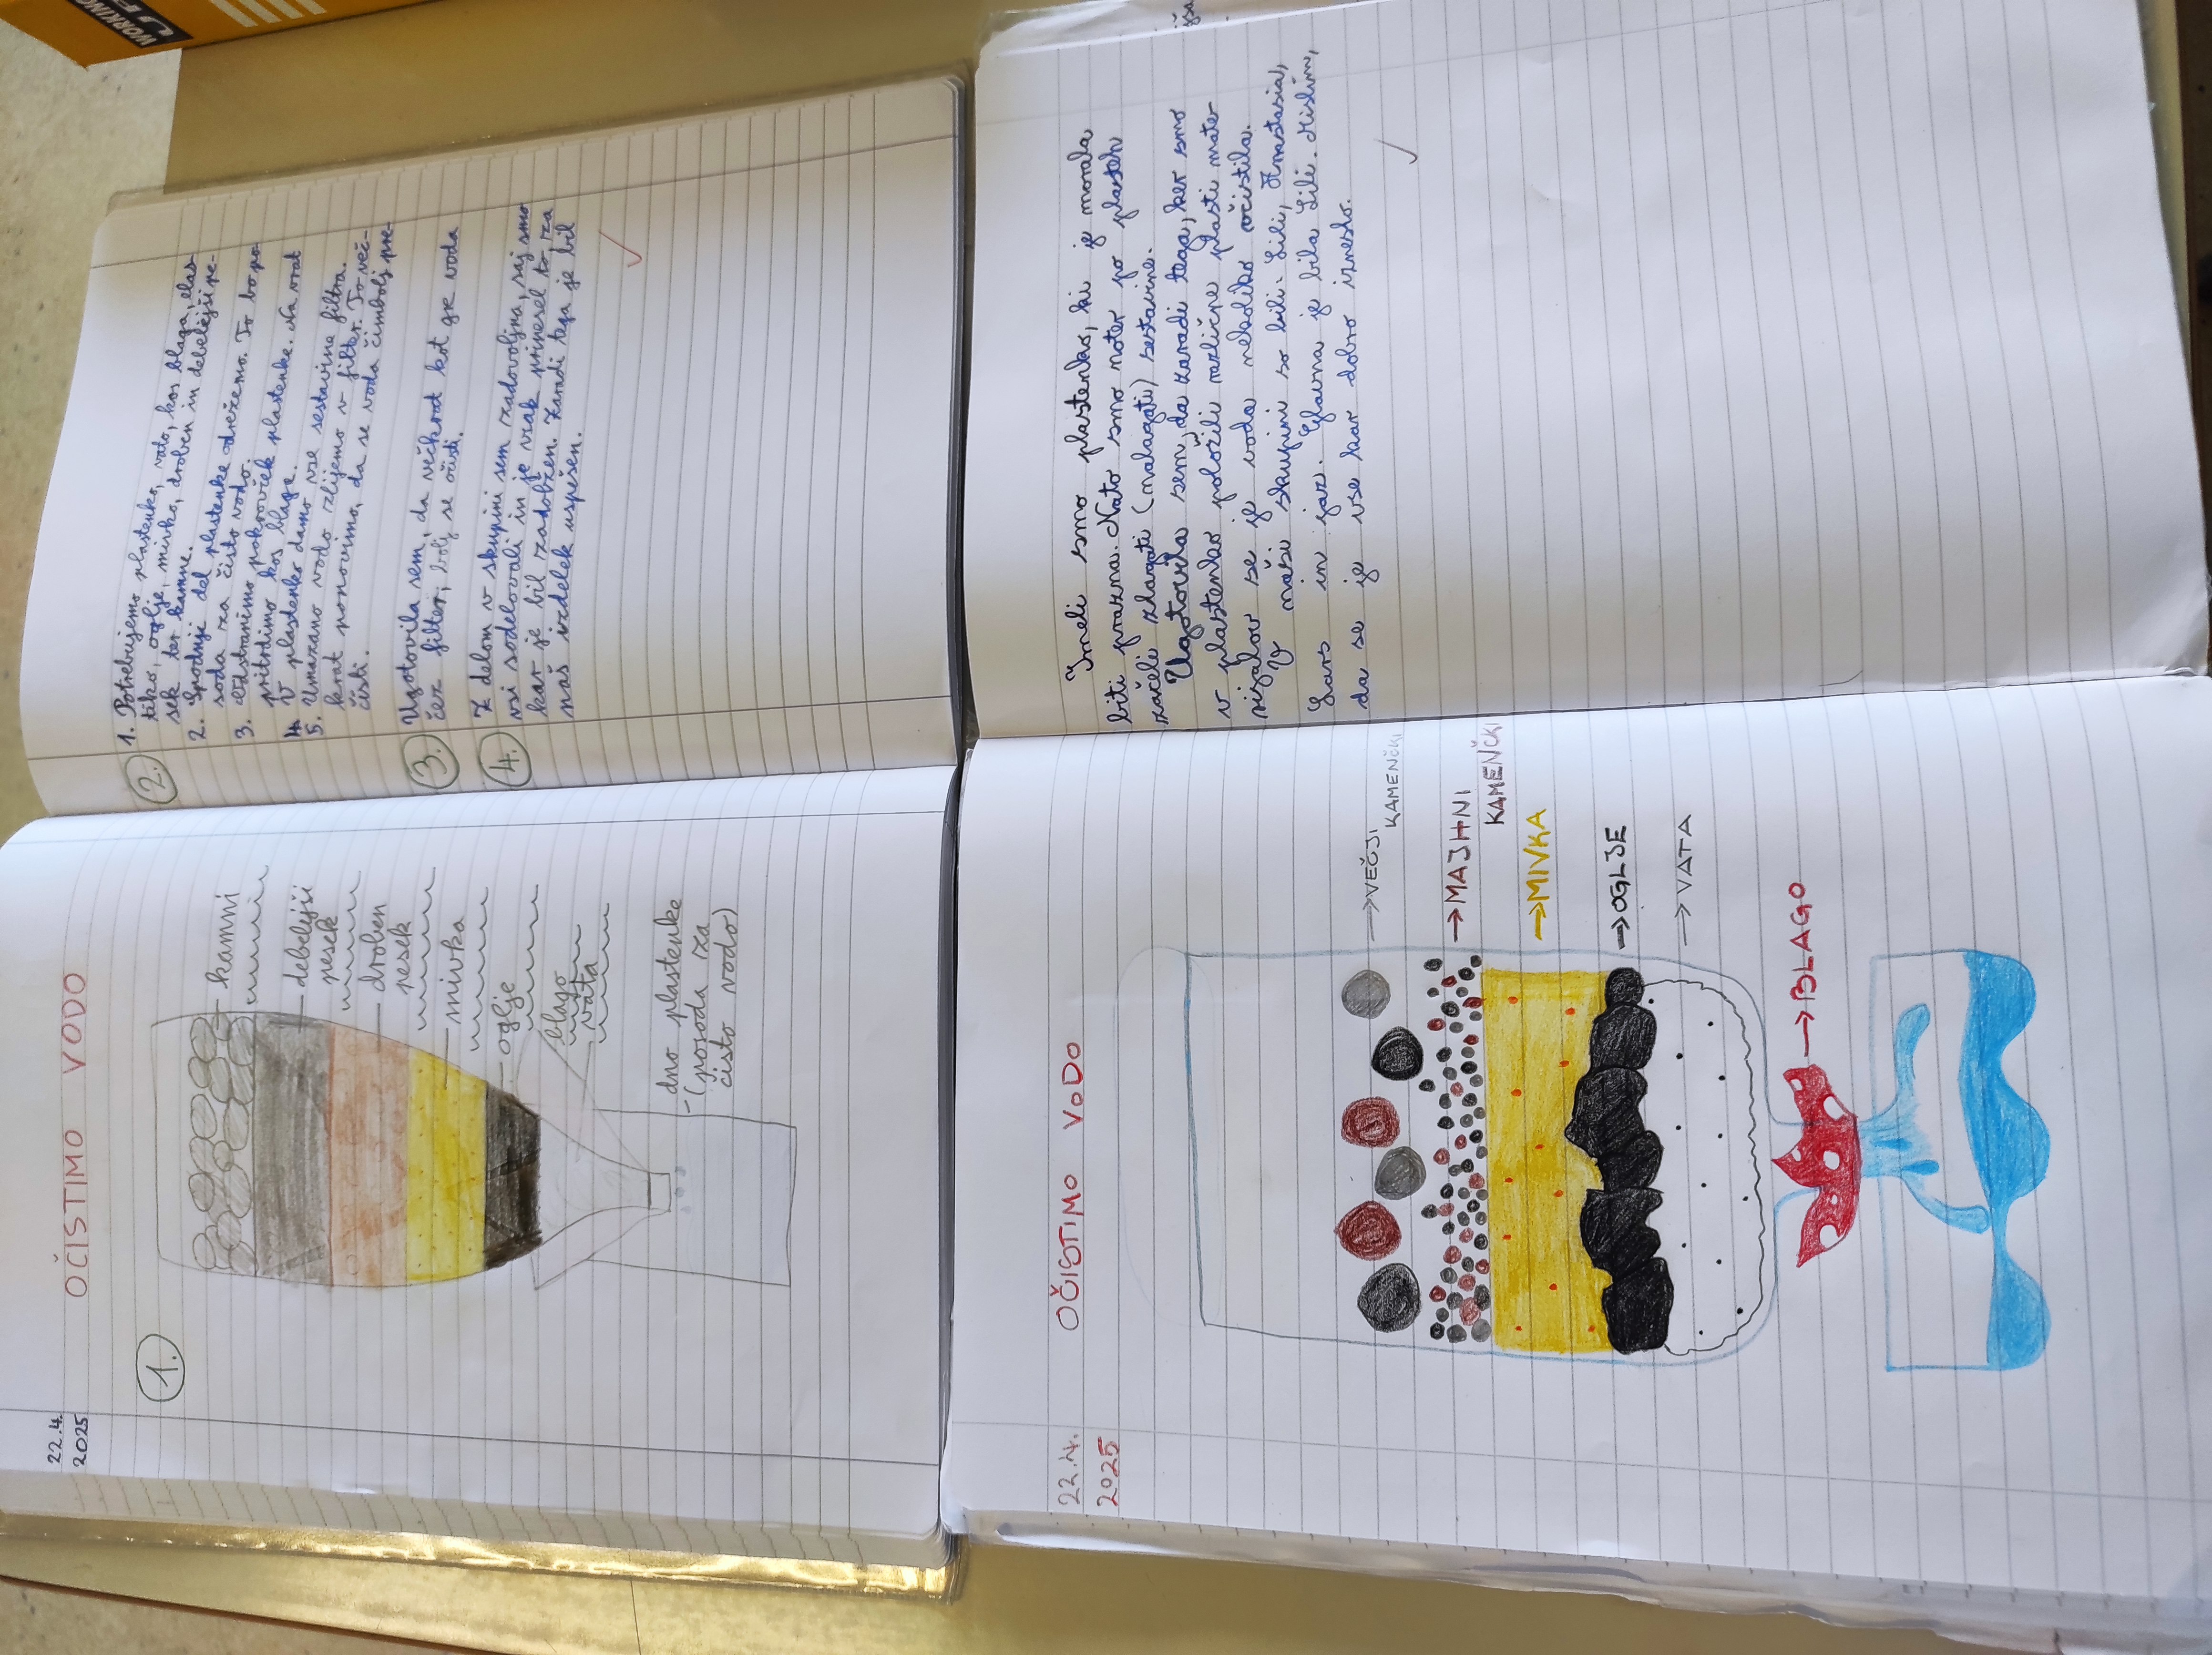 WORKING
22.4.
2025
OČISTIMO VODO
1.
kamni
debelejši
pesek
droben
pesek
mivka
oglje
blago
vata
dno plastenke
(posoda za
čisto vodo)
2.
1. Potrebujemo plastenko, vato, kos blaga, elas-
tiko, oglje, mivko, droben in debelejši pe-
sek ter kamne.
2. Spodnji del plastenke odrežemo. To bo po-
soda za čisto vodo.
3. Odstranimo pokrovček plastenke. Na vrat
pritrdimo kos blaga.
4. V plastenko damo vse sestavine filtra.
5. Umazano vodo zlijemo v filter. To več-
krat ponovimo, da se voda čimbolj pre-
čisti.
3. Ugotovila sem, da večkrat kot gre voda
čez filter, bolj se očisti.
4. Z delom v skupini sem zadovoljna, saj smo
vsi sodelovali in je vsak prinesel to za
kar je bil zadolžen. Zaradi tega je bil
naš izdelek uspešen.
22.4.
2025
OČISTIMO VODO
→VEČJI
KAMENČKI
→MAJHNI
KAMENČKI
→MIVKA
→OGLJE
→VATA
→BLAGO
Imeli smo plastenko, ki je morala
biti prazna. Nato smo noter po plasteh
začeli zlagati (nalagati) sestavine.
Ugotovila sem, da zaradi tega, ker smo
v plastenko položili različne plasti mater
rialov se je voda nekoliko očistila.
V naši skupini so bili: Lili, Anastasia,
Lars in jaz. Glavna je bila Lili. Mislim,
da se je vse kar dobro izneslo.